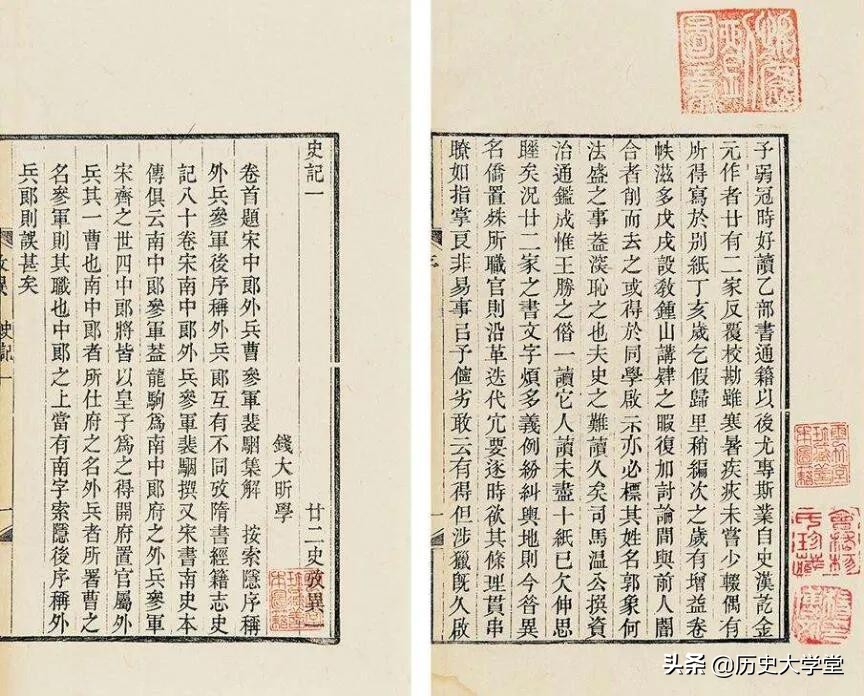 予弱冠時好讀乙部書通籍以後尤專斯業自史漢訖金
元作者廿有二家反覆校勘雖寒暑疾疢未嘗少輟偶有
所得寫於別紙丁亥歲乞假歸里稍編次之歲有增益卷
帙滋多戊戌設敎鍾山講肄之暇復加討論間與前人闇
合者削而去之或得於同學啟示亦必標其姓名郭象何
法盛之事蓋深恥之也夫史之難讀久矣司馬溫公撰資
治通鑑成惟王勝之借一讀它人讀未盡十紙已欠伸思
睡矣況廿二家之書文字煩多義例紛糾輿地則今昔異
名僑置殊所職官則沿革迭代冗要逐時欲其條理貫串
瞭如指掌良非易事㠯予儜劣敢云有得但涉獵旣久啟
史記一 廿二史攷異一
錢大昕學
卷首題宋中郞外兵曹參軍裴駰集解 按索隱序稱
外兵參軍後序稱外兵郞互有不同攷隋書經籍志史
記八十卷宋南中郞外兵參軍裴駰撰又宋書南史本
傳俱云南中郞參軍蓋龍駒爲南中郞府之外兵參軍
宋齊之世四中郞將皆以皇子爲之得開府置官屬外
兵其一曹也南中郞者所仕府之名外兵者所署曹之
名參軍則其職也中郞之上當有南字索隱後序稱外
兵郞則誤甚矣
史記一
头条 @历史大学堂